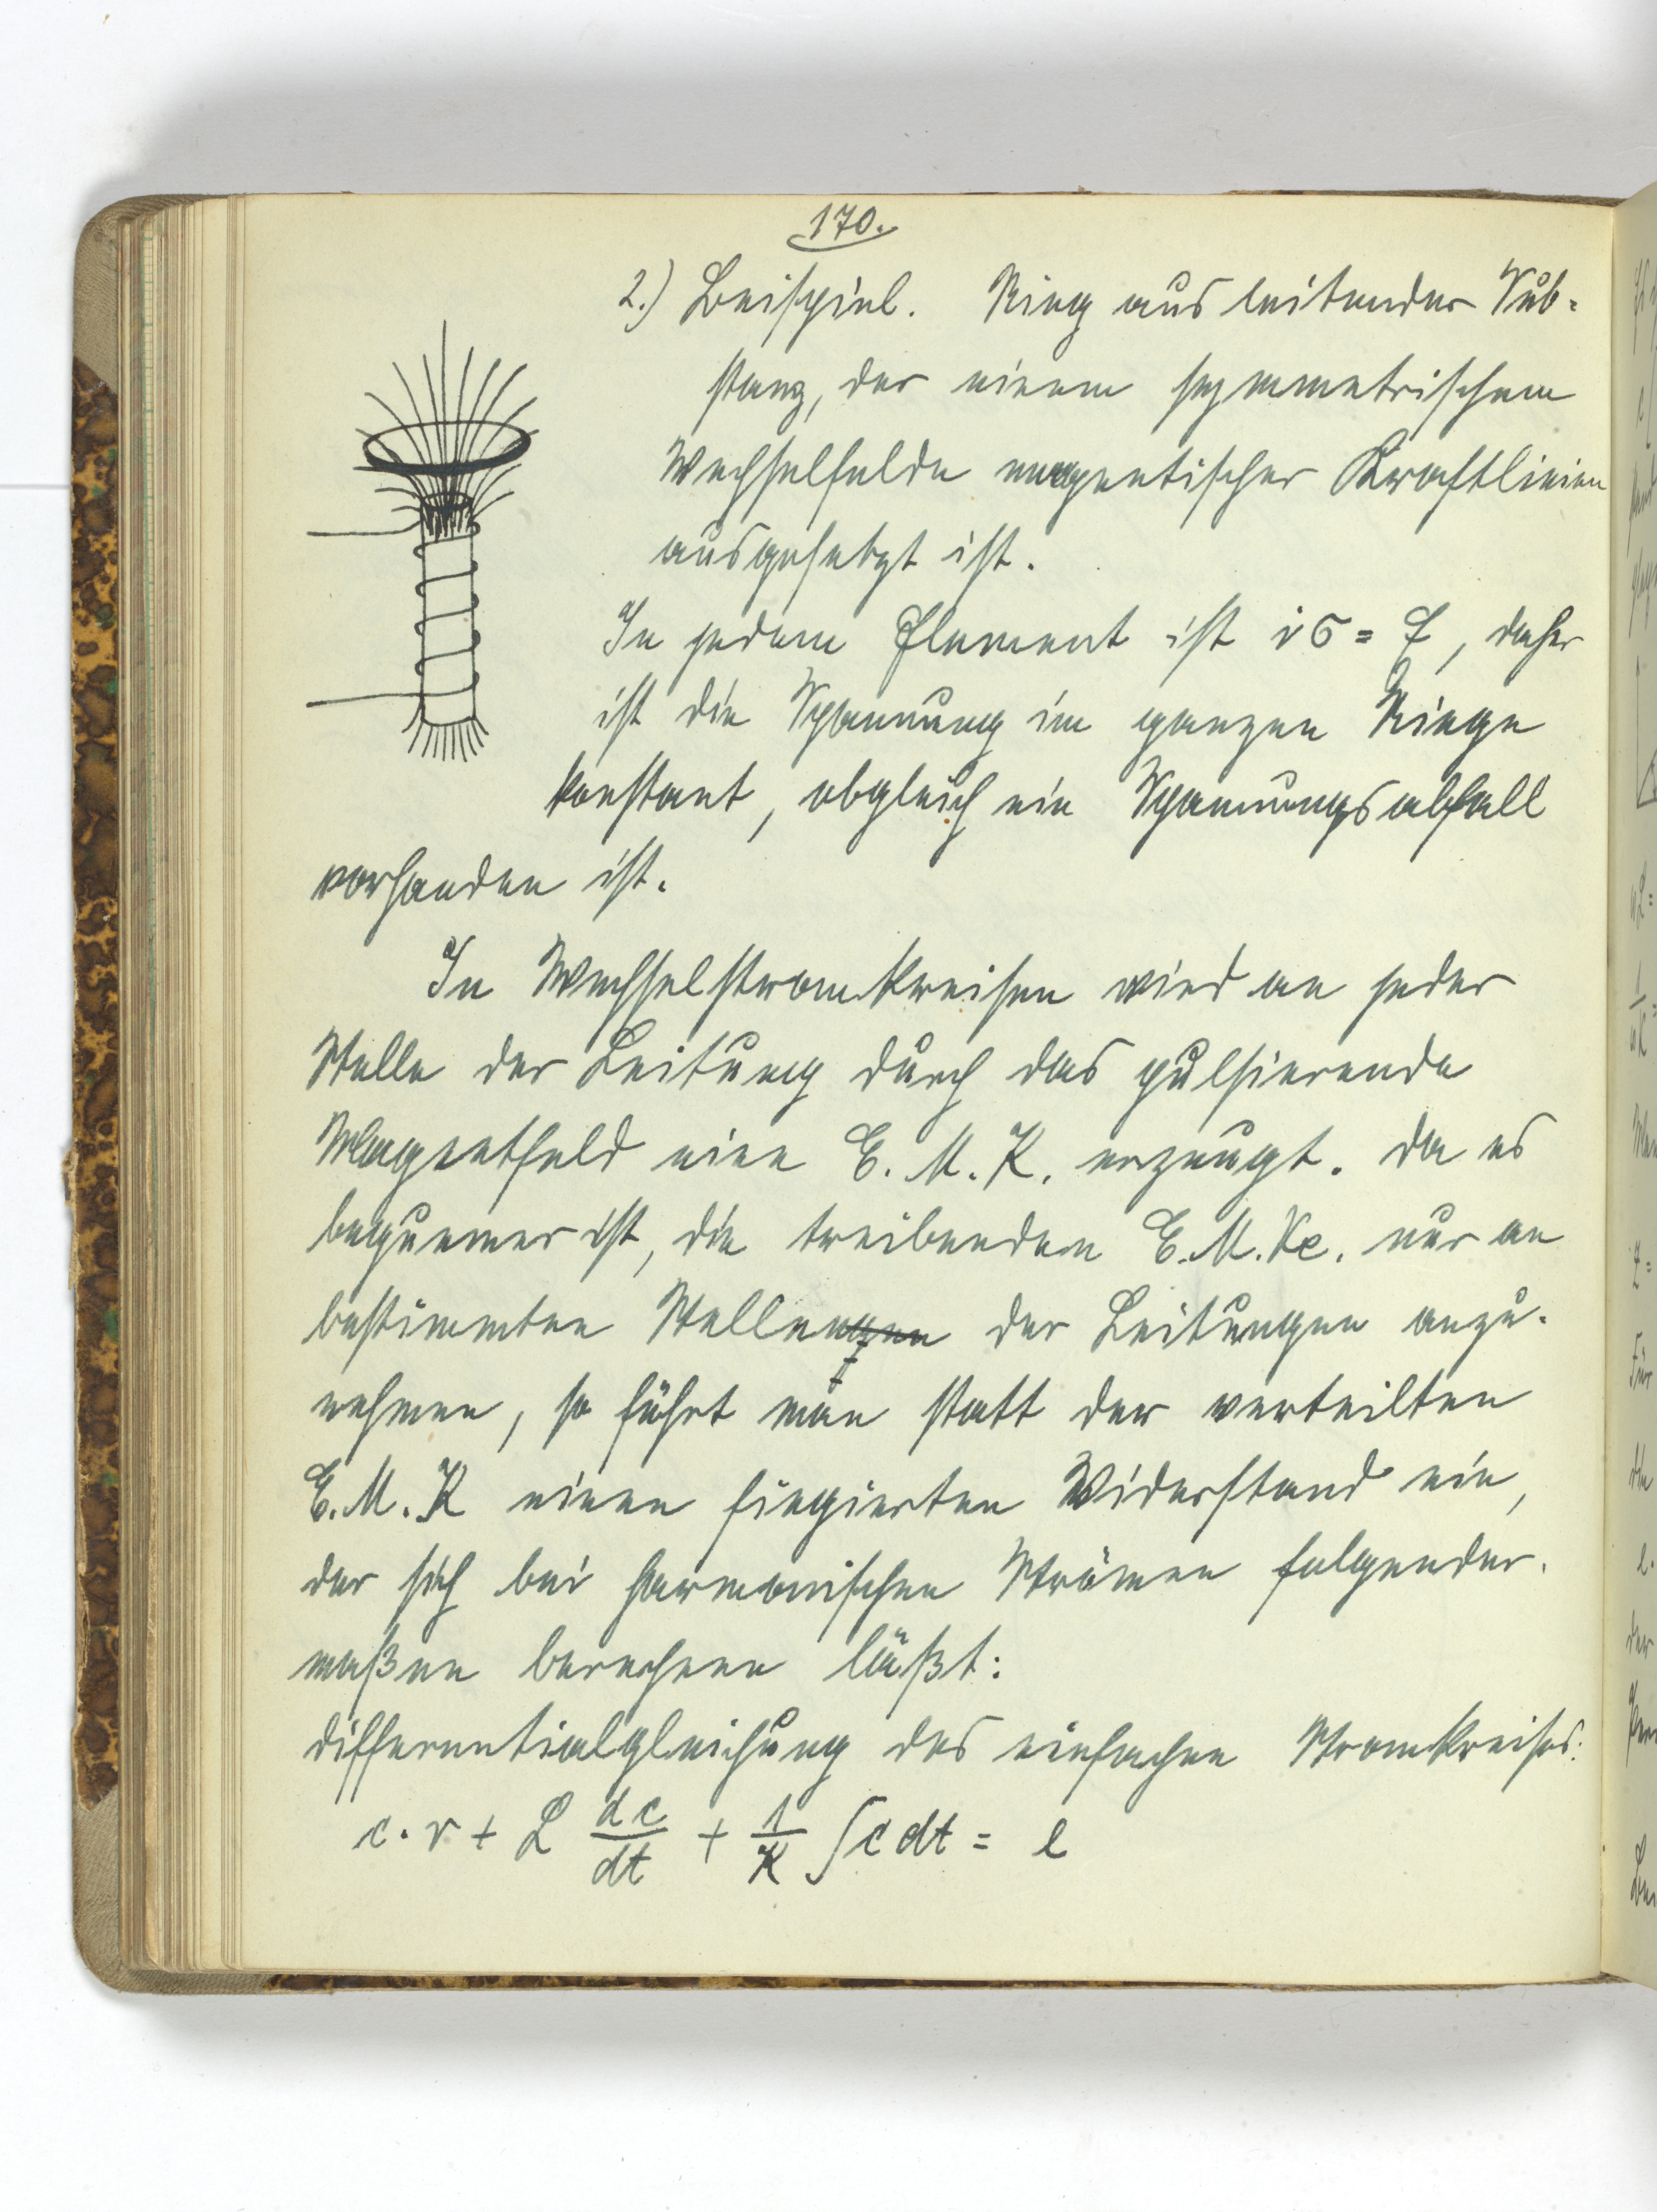 170.
2.) Beispiel. Ring aus leitender Sub=
stanz, der einem symmetrischem
Wechselfelde magnetischer Kraftlinien
ausgesetzt ist.
In jedem Element ist iσ = F, daher
ist die Spannung im ganzen Ringe
konstant, obgleich ein Spannungsabfall
vorhanden ist.
In Wechselstromkreisen wird an jeder
Stelle der Leitung durch das pulsierende
Magnetfeld eine E. M. K. erzeugt. Da es
bequemer ist, die treibenden E. M. Ke. nur an
bestimmten Stellen der Leitungen anzu-
nehmen, so führt man statt der verteilten
E. M. K einen fingierten Widerstand ein,
der sich bei harmonischen Strömen folgender-
maßen berechnen läßt:
Differentialgleichung des einfachen Stromkreises:
c · r + L dc/dt + 1/K ∫c dt = e